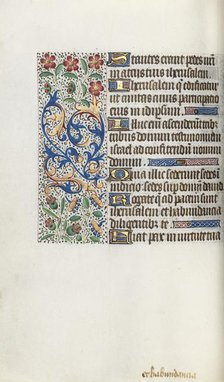 Stantes erant pedes n̄ri
in atriis tuis iherusalem
Iherusalem que edificatur
ut civitas cuius participatio
eius in idipsum
Illuc enim ascenderunt tri
bus tribus domini testimonium
israel ad confitendum nomini
domini
Quia illic sederunt sedes in
iudicio sedes sup domum david
Rogate que ad pacem sunt
iherusalem et habundancia
diligentibus te
Fiat pax in virtute tua
et habundancia